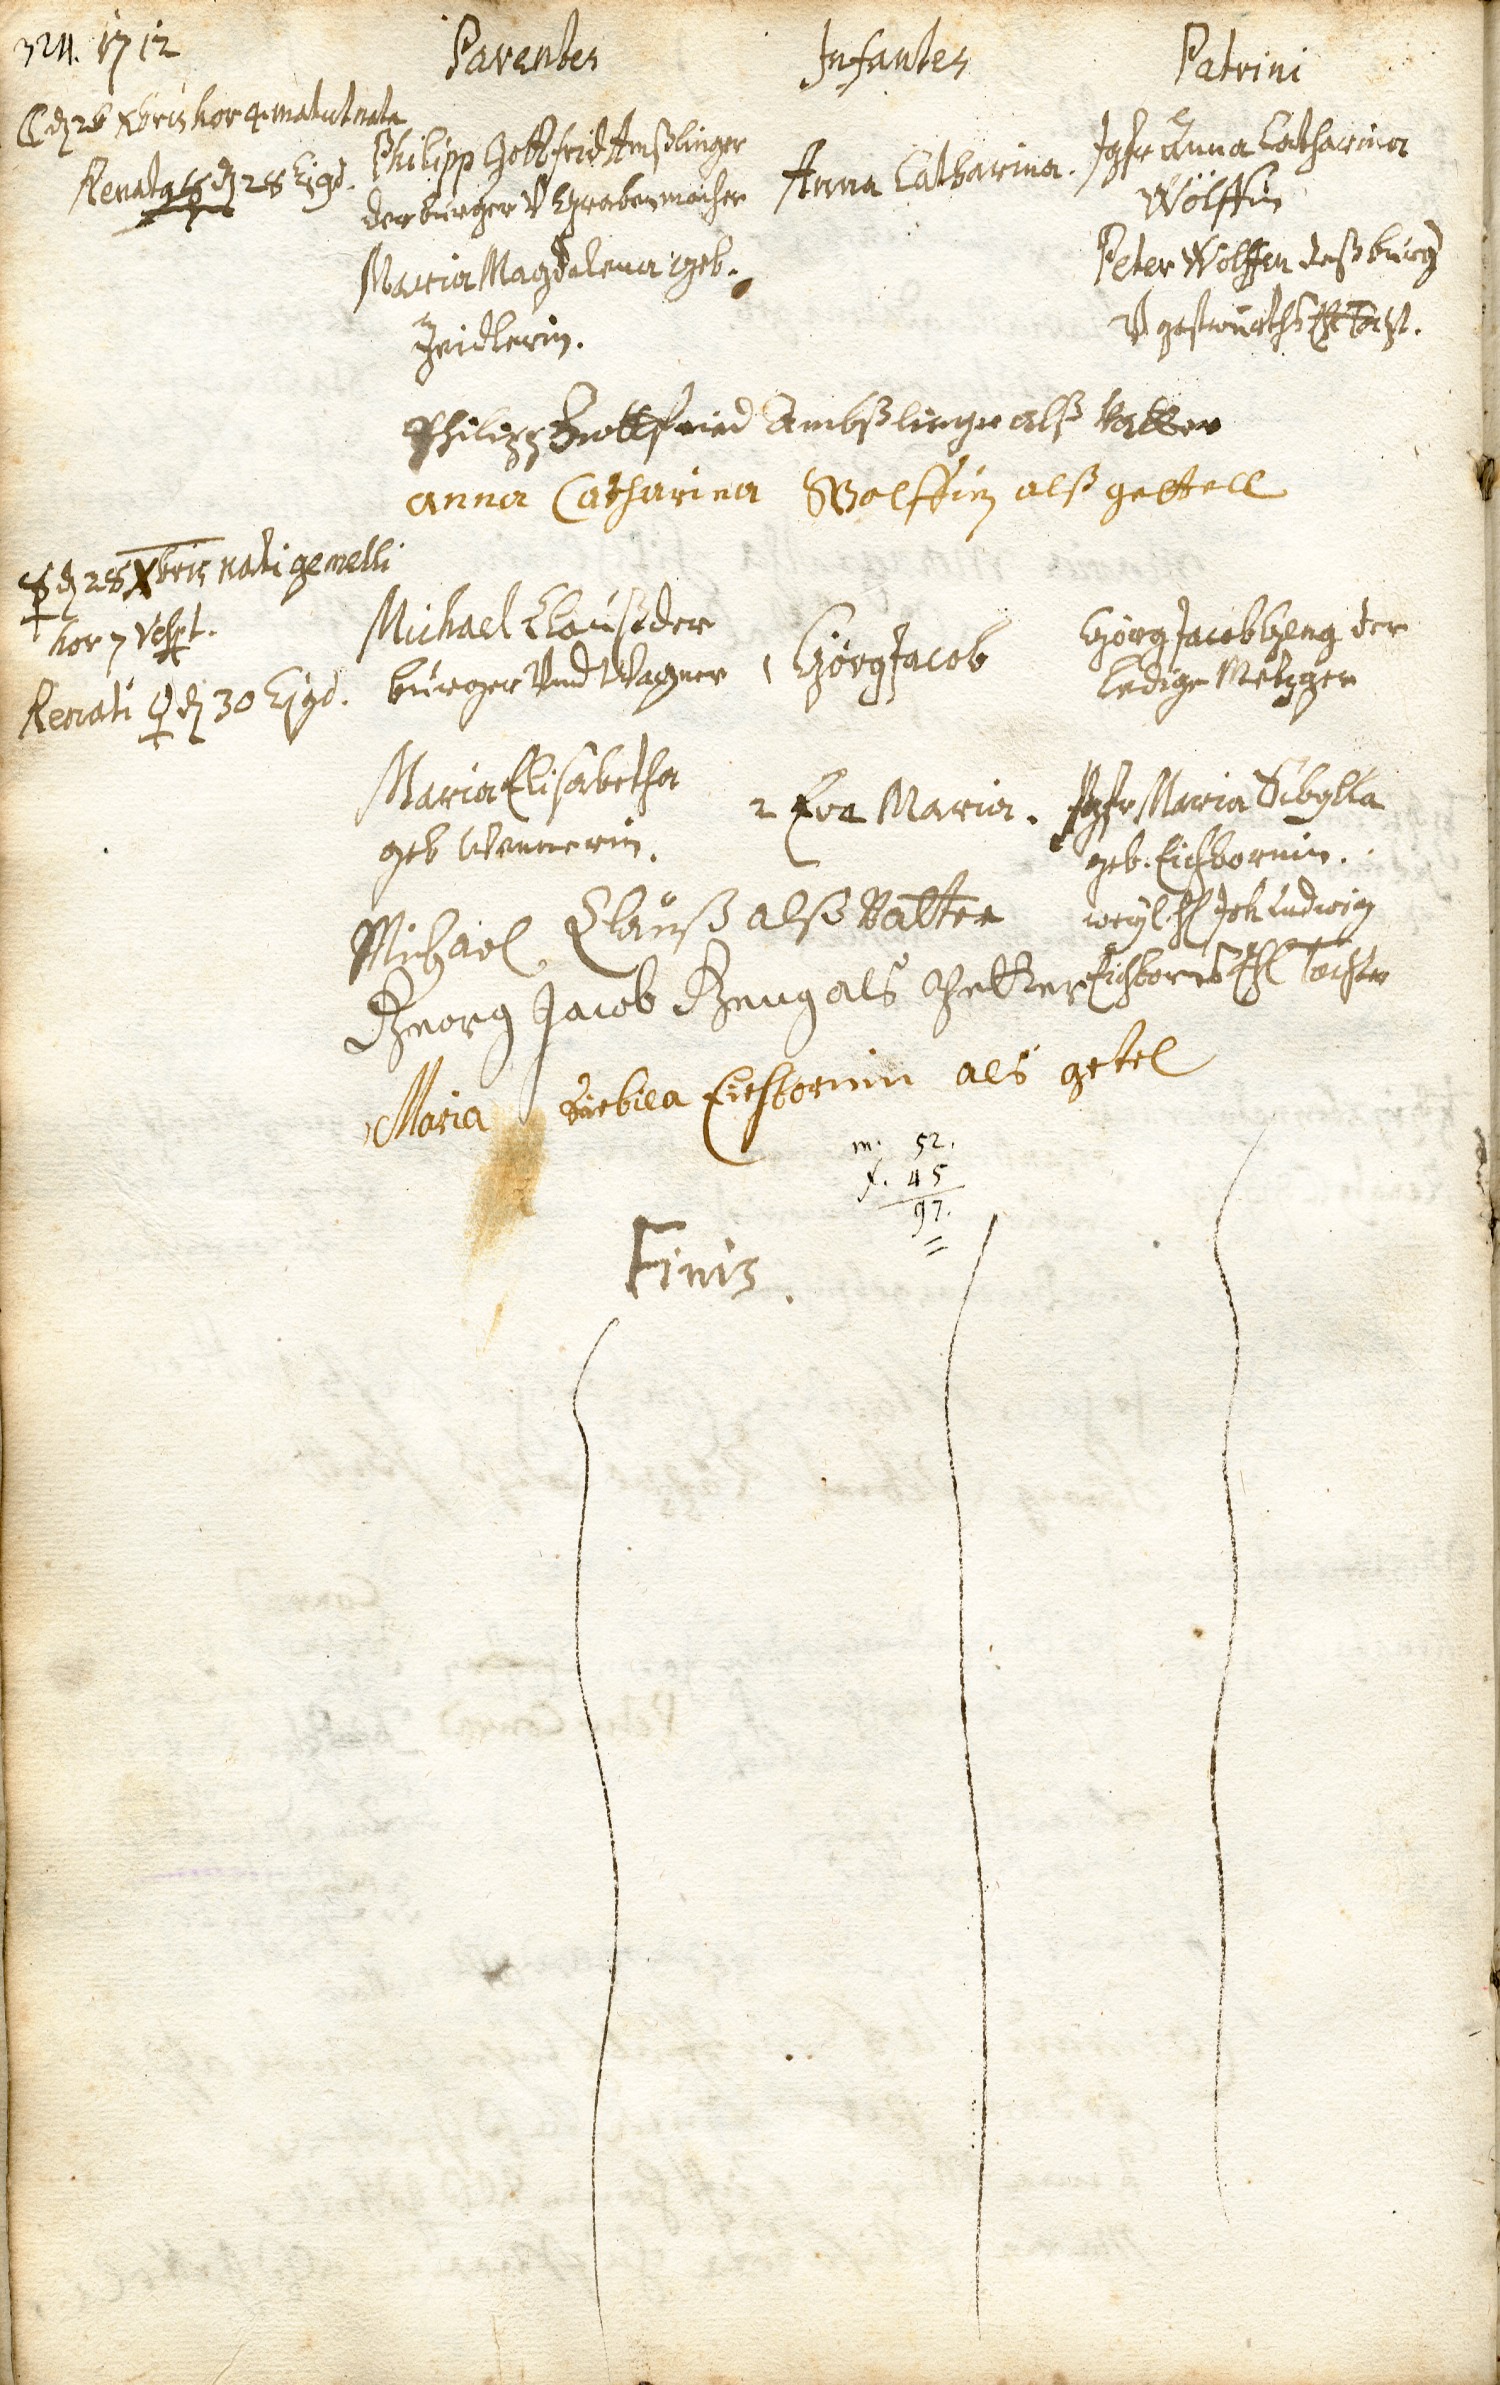 324. 1712
Parentes Infantes Patrini
☾ d 26 Xbris hor 4 matut nata
Renata ☿ d 28 Ejd.
Philipp Gottfrid Amßlinger
der burger V Grabenmacher
Maria Magdalena geb.
Zeidlerin.
Anna Catharina.
Jgfr Anna Catharina
Wölffin
Peter Wolffen deß burg
V gastwürths
Philipp Gottfried Ambßlinger alß Vatter
anna Catharina Wolffin alß gettell
☿ d 28 Xbris nati gemelli
hor 7 Vesp.
Renati ♀ d 30 Ejd.
Michael Clauß der
burger Vnd Wagner
Maria Elisabetha
geb Wennerin.
1 Görg Jacob
2 Eva Maria.
Görg Jacob Heng der
Ledige Metzger
Jgfr Maria Sibylla
geb. Eichbornin.
weyl H Joh Ludwig
Eichborns Ehl Tochter
Michael Clauß alß Vatter
Georg Jacob Heng als Pfetter
Maria Siebila Eichbornin als getel
m. 52.
f. 45
97.
Finis.